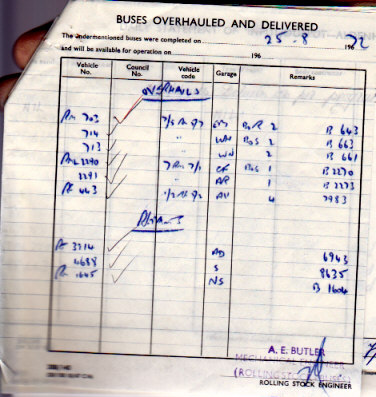 BUSES OVERHAULED AND DELIVERED
The undermentioned buses were completed on 25-8 1962 72
and will be available for operation on 196
Vehicle No. Council No. Vehicle code Garage Remarks
OVERHAULS
Rm 703 BOR 2 B 643
714 " WN BOS 2 B 663
713 " WN 2 B 661
2290 BOS 1 B 2270
2291 " AR 1 B 2273
463 4 7983
3714 AD 6943
4688 S 8635
1645 NS B 1604
A. E. BUTLER
MECHANICAL ENGINEER
(ROLLING STOCK
ROLLING STOCK ENGINEER